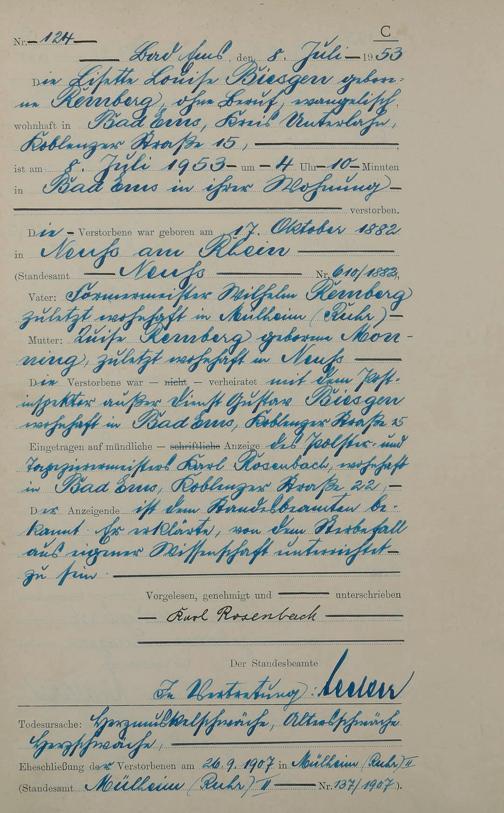 C
Nr. 124
Bad Ems, den 8. Juli 1953
Die Lisette Louise Biesgen gebore-
ne Remberg, ohne Beruf, evangelisch,
wohnhaft in Bad Ems, Kreis Unterlahn,
Koblenzer Straße 15,
ist am 8. Juli 1953 um 4 Uhr 10 Minuten
in Bad Ems in ihrer Wohnung
verstorben.
Die Verstorbene war geboren am 17. Oktober 1882
in Neuß am Rhein
(Standesamt Neuß Nr. 610/1882),
Vater: Formermeister Wilhelm Remberg
zuletzt wohnhaft in Mülheim (Ruhr)
Mutter: Luise Remberg geborene Mon-
ning, zuletzt wohnhaft in Neuß
Die Verstorbene war — nicht — verheiratet mit dem Post-
inspektor außer Dienst Gustav Biesgen
wohnhaft in Bad Ems, Koblenzer Straße 15
Eingetragen auf mündliche — schriftliche Anzeige des Polster- und
Tapezierermeisters Karl Rosenbach, wohnhaft
in Bad Ems, Koblenzer Straße 22,
Der Anzeigende ist dem Standesbeamten be-
kannt. Er erklärte, von dem Sterbefall
aus eigener Wissenschaft unterrichtet
zu sein.
Vorgelesen, genehmigt und unterschrieben
Karl Rosenbach
Der Standesbeamte
In Vertretung:
Todesursache: Herzmuskelschwäche, Altersschwäche
Herzschwäche,
Eheschließung der Verstorbenen am 26.9.1907 in Mülheim (Ruhr) II
(Standesamt Mülheim (Ruhr) II Nr. 137/1907).